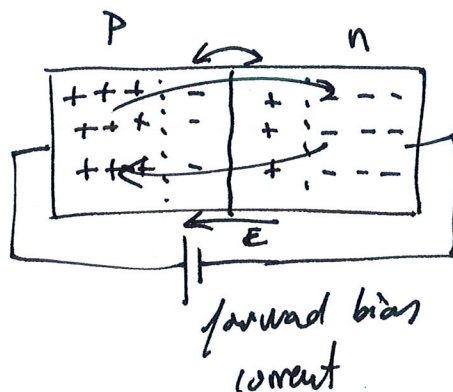 P n
+ + + - + - - -
+ + + - + - - -
+ + + - + - - -
E
forward bias
current